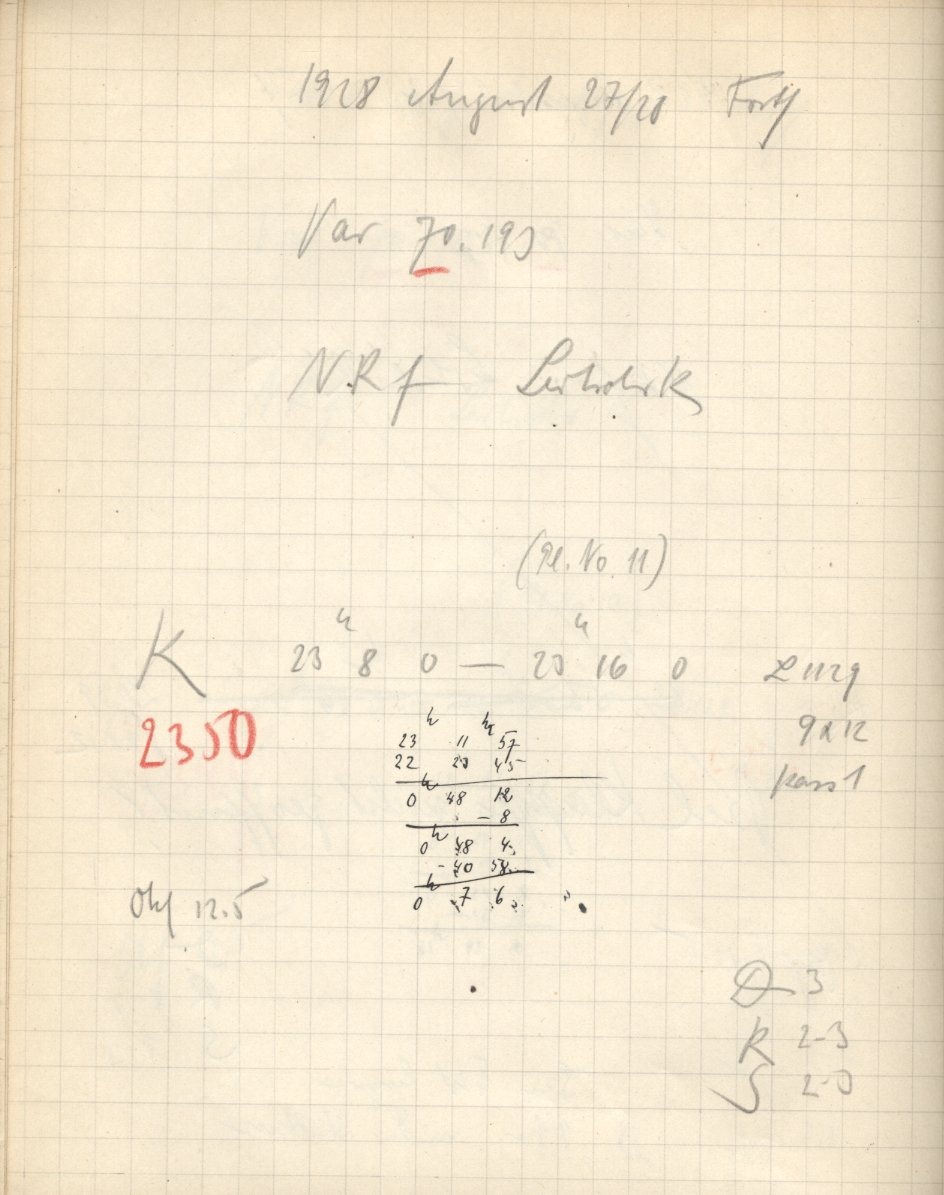 1928 August 27/28 Forts
Var 70.193
NRf
(Pl. No 11)
K 23 h 8 0 — 23 h 16 0
2350
9x12
h h
23 11 57
22 23 45
0 h 48 12
- 8
0 h 48 4
- 40 58
0 h 7 6
Obj 12.5
D 3
R 2-3
S 2-3